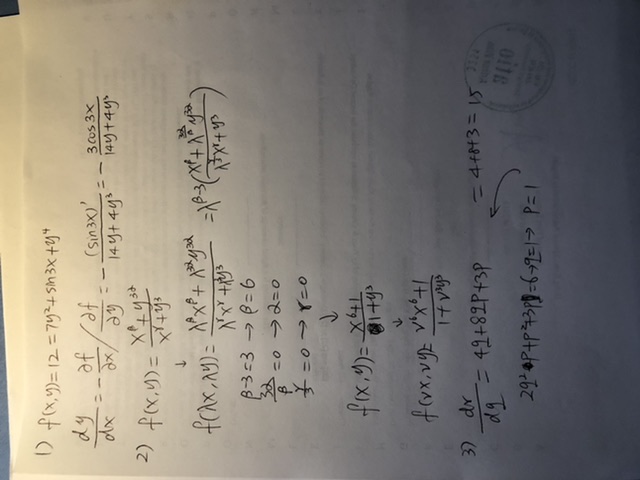 1) f(x,y)=12=7y²+sin3x+y⁴
dy/dx = -∂f/∂x / ∂f/∂y = -(sin3x)'/14y+4y³ = -3cos3x/14y+4y³
2) f(x,y)= x^β+y^3α / x^γ+y³
↓
f(λx,λy)= λ^βx^β+λ^3αy^3α / λ^γx^γ+λ³y³ =λ^β-3(
β-3=3 → β=6
=0 → α=0
=0 → γ=0
↓
f(x,y)= x⁶+1 / 1+y³
↓
f(vx,vy)= v⁶x⁶+1 / 1+v³y³
3) dx/dq = 4q+8qp+3p = 4+8+3=15
=6→q=1→ p=1